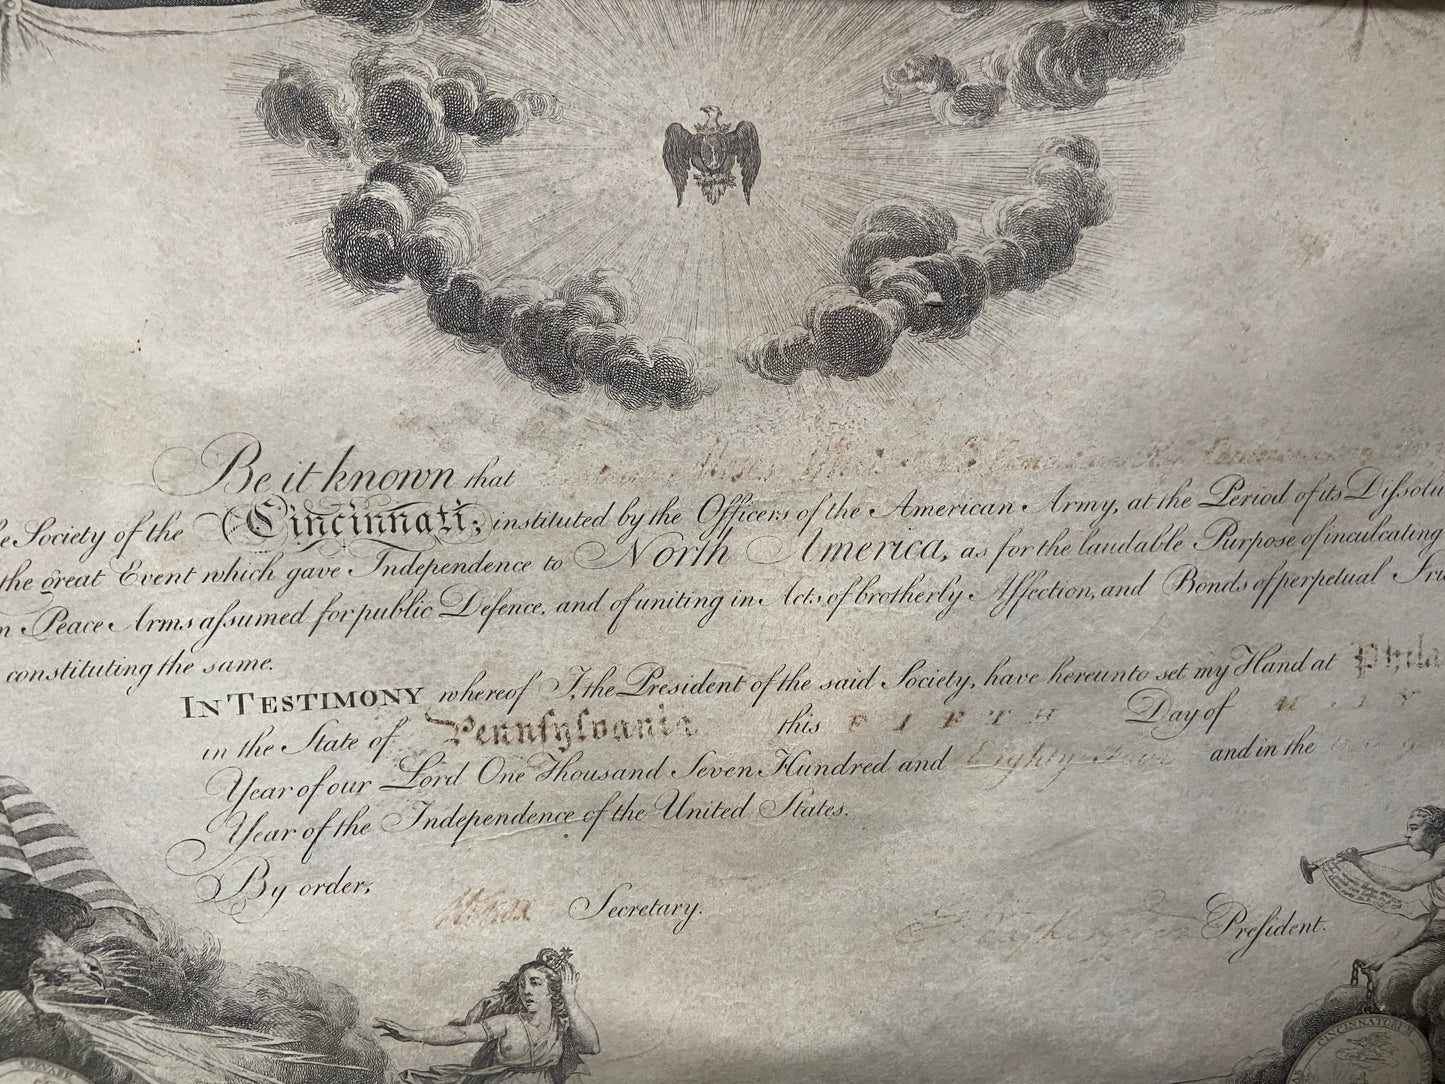 Be it known that
e Society of the Cincinnati; instituted by the Officers of the American Army, at the Period of its Dissolu
the great Event which gave Independence to North America, as for the laudable Purpose of inculcating
n Peace Arms assumed for public Defence, and of uniting in Acts of brotherly Affection, and Bonds of perpetual Fri
constituting the same.
In Testimony whereof I, the President of the said Society, have hereunto set my Hand at Phila
in the State of Pennsylvania this FIFTH Day of MAY
Year of our Lord One Thousand Seven Hundred and Eighty Four and in the
Year of the Independence of the United States.
By order,
HKnox Secretary.
G Washington President.
CINCINNATUS
SERVARE